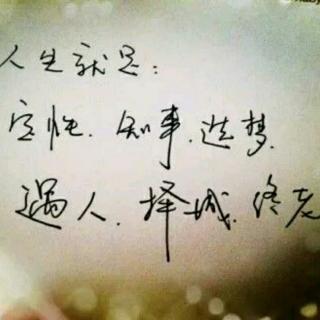 人生就是：
定性、知事、造梦、
遇人、择城、终老